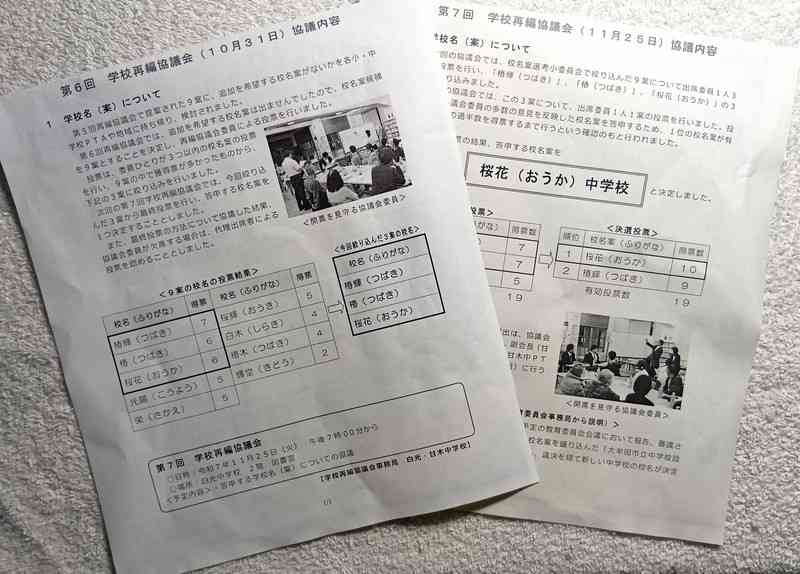 第6回　学校再編協議会（10月31日）協議内容
1　学校名（案）について
第5回再編協議会で提案された9案に、追加を希望する校名案がないかを各小・中
学校PTAや地域に持ち帰り、検討されました。
第6回再編協議会では、追加を希望する校名案は出ませんでしたので、校名案候補
を9案とすることを決定し、再編協議会委員による投票を行いました。
投票は、委員ひとりが3つ以内の校名案の投票
を行い、9案の中で獲得票が多かったものから、
下記の3案に絞り込みを行いました。
次回の第7回学校再編協議会では、今回絞り込
んだ3案から最終投票を行い、答申する校名案を
1つ決定することとしました。
また、最終投票の方法について協議した結果、
協議会委員が欠席する場合は、代理出席者による
投票を認めることとしました。
＜開票を見守る協議会委員＞
＜9案の校名の投票結果＞
校名（ふりがな）　得票　校名（ふりがな）　得票
椿輝（つばき）　7　桜輝（おうき）　5
椿（つばき）　6　白木（しらき）　4
桜花（おうか）　6　椿木（つばき）　4
光陽（こうよう）　5　輝堂（きどう）　2
栄（さかえ）　5
＜今回絞り込んだ3案の校名＞
校名（ふりがな）
椿輝（つばき）
椿（つばき）
桜花（おうか）
第7回　学校再編協議会
□日時：令和7年11月25日（火）　午後7時00分から
□場所：白光中学校　2階　図書室
＜予定内容＞・答申する学校名（案）についての協議
【学校再編協議会事務局　白光・甘木中学校】
第7回　学校再編協議会（11月25日）協議内容
校名（案）について
回の協議会では、校名案選考小委員会で絞り込んだ9案について出席委員1人3
投票を行い、「椿輝（つばき）」、「椿（つばき）」、「桜花（おうか）」の3
り込みました。
の協議会では、この3案について、出席委員1人1案の投票を行いました。投
議会委員の多数の意見を反映した校名案を答申するため、1位の校名案が有
の過半数を得票するまで行うという確認のもと行われました。
票の結果、答申する校名案を
桜花（おうか）中学校
と決定しました。
投票＞
な）　得票数
7
7
5
19
＜決選投票＞
順位　校名案（ふりがな）　得票数
1　桜花（おうか）　10
2　椿輝（つばき）　9
有効投票数　19
出は、協議会
、副会長（甘
甘木中PT
）に行う
＜開票を見守る協議会委員＞
委員会事務局から説明）＞
予定の教育委員会会議において報告、審議さ
校名案を盛り込んだ「大牟田市立中学校設
、議決を経て新しい中学校の校名が決定